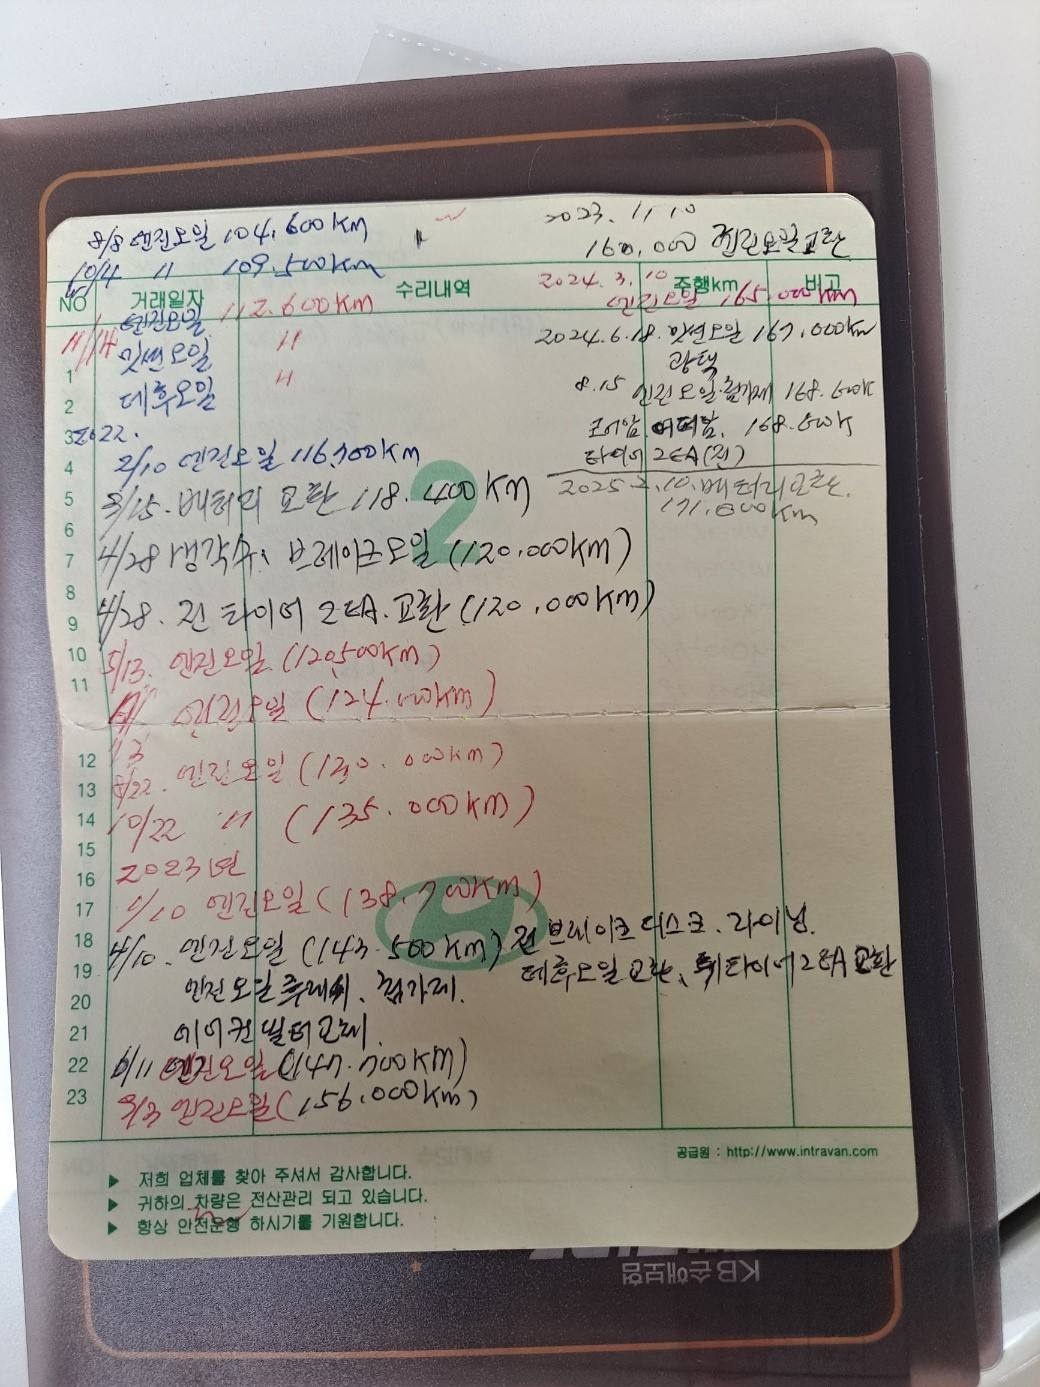 8/8 엔진오일 104,600KM
10/4 〃 109,500KM
2023. 11, 10
160,000 엔진오일교환
NO 거래일자 수리내역 주행km 비고
2024. 3, 10
엔진오일 165.000KM
11/14 엔진오일 112.600KM
밋션오일 〃
데후오일 〃
2024.6.18. 밋션오일 167,000km
광택
8.15 엔진오일.첨가제 168.600K
로어암 어퍼암, 168.600K
타이어 2EA(전)
2025.2.10.배터리교환.
171.000km
2022.
2/10 엔진오일 116,300KM
3/15.배터리 교환 118.400KM
4/28 냉각수, 브레이크오일 (120.000KM)
4/28. 전 타이어 2EA.교환 (120,000KM)
5/13. 엔진오일 (120,500KM)
엔진오일 (124.000KM)
8/22. 엔진오일 (130.000KM)
10/22 〃 (135.000KM)
2023년
1/10 엔진오일 (138.700KM)
4/10. 엔진오일 (143.500KM) 전 브레이크 디스크. 라이닝.
데후오일교환, 뒤타이어2EA교환
엔진오일 후레쉬. 첨가제.
에어컨필터교체.
6/11 엔진오일 (147.700KM)
엔진오일 (156.000KM)
1
2
3
4
5
6
7
8
9
10
11
12
13
14
15
16
17
18
19
20
21
22
23
2
공급원 : http://www.intravan.com
▶ 저희 업체를 찾아 주셔서 감사합니다.
▶ 귀하의 차량은 전산관리 되고 있습니다.
▶ 항상 안전운행 하시기를 기원합니다.
KB손해보험